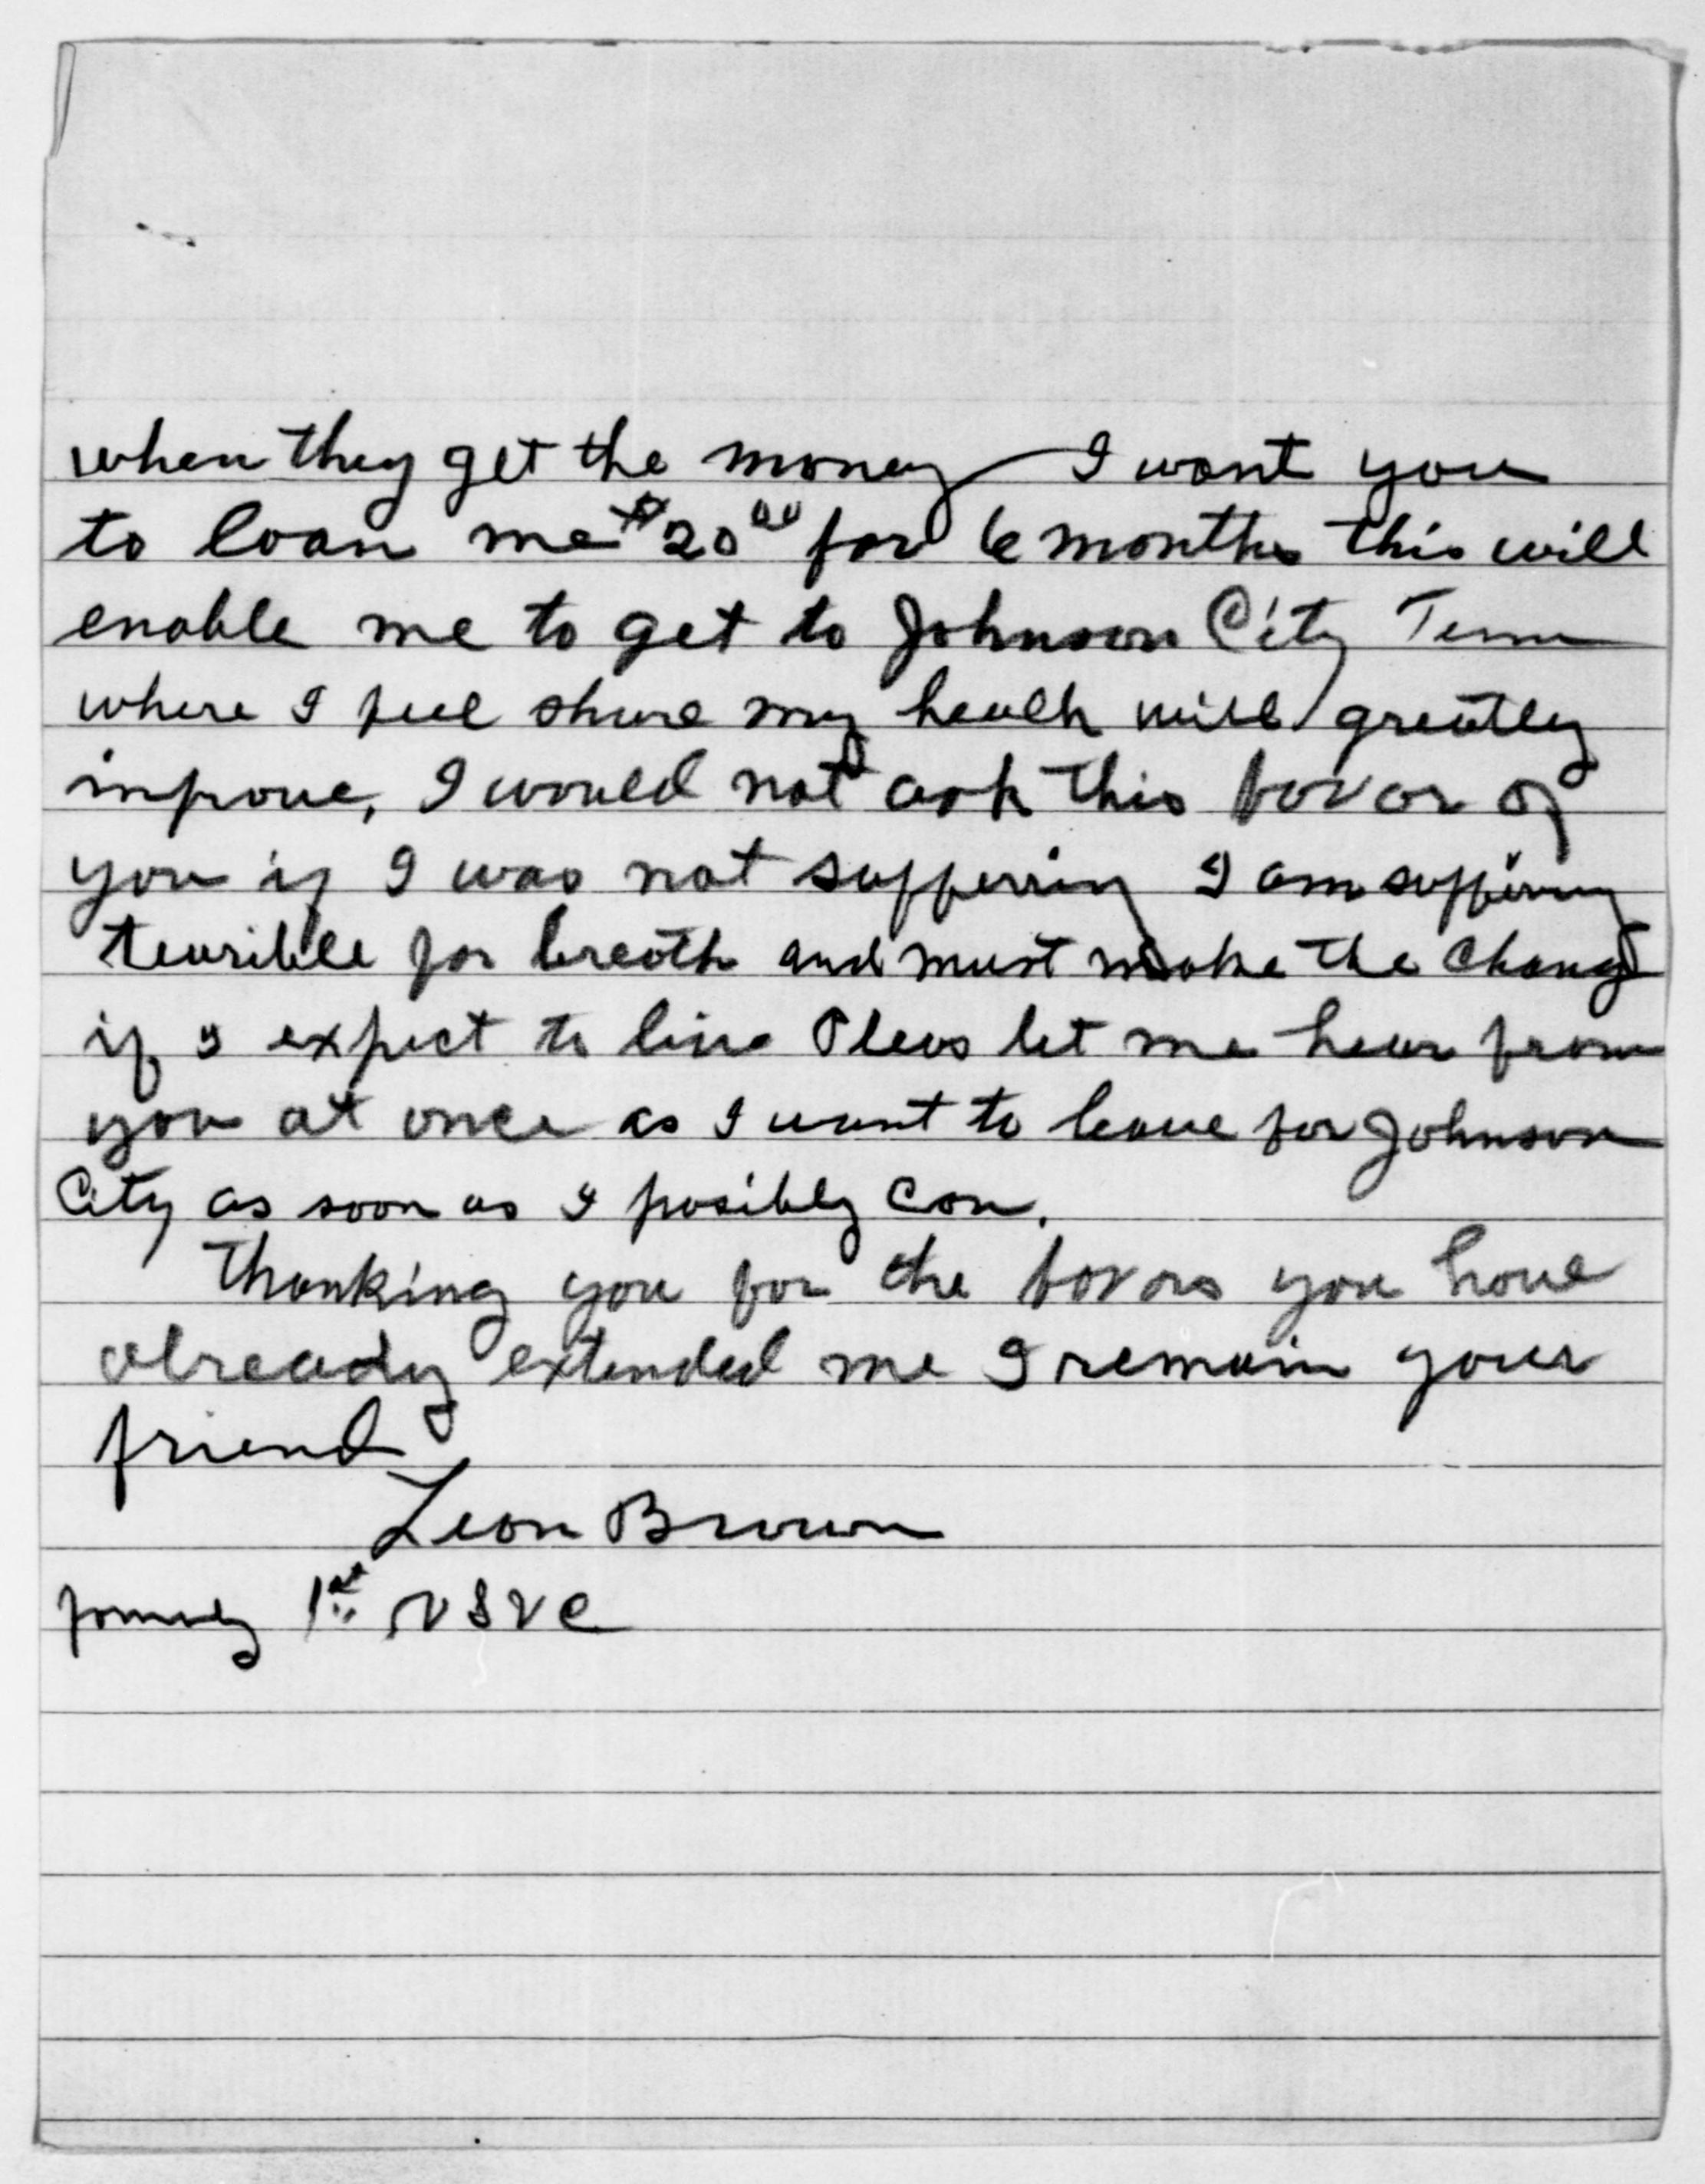 when they get the money I want you
to loan me $20.00 for 6 months this will
enable me to get to Johnson City Tenn
where I feel shure my healh will greatley
improve, I would not ask this favor of
you if I was not sufferring I am suffering
tearible for breath and must make the change
if I expect to live Pleas let me hear from
you at once as I want to leave for Johnson
City as soon as I posibly can.
Thanking you for the favors you have
already extended me I remain your
friend
Leon Brown
formerly 1st